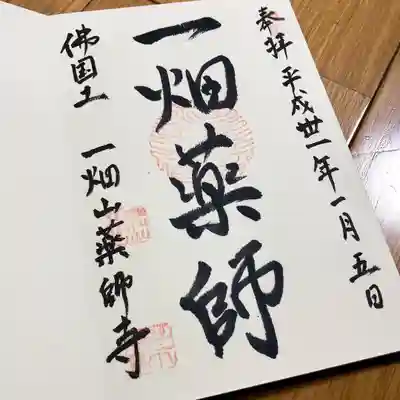 奉拝 平成卅一年一月五日
一畑薬師
佛国土 一畑山薬師寺